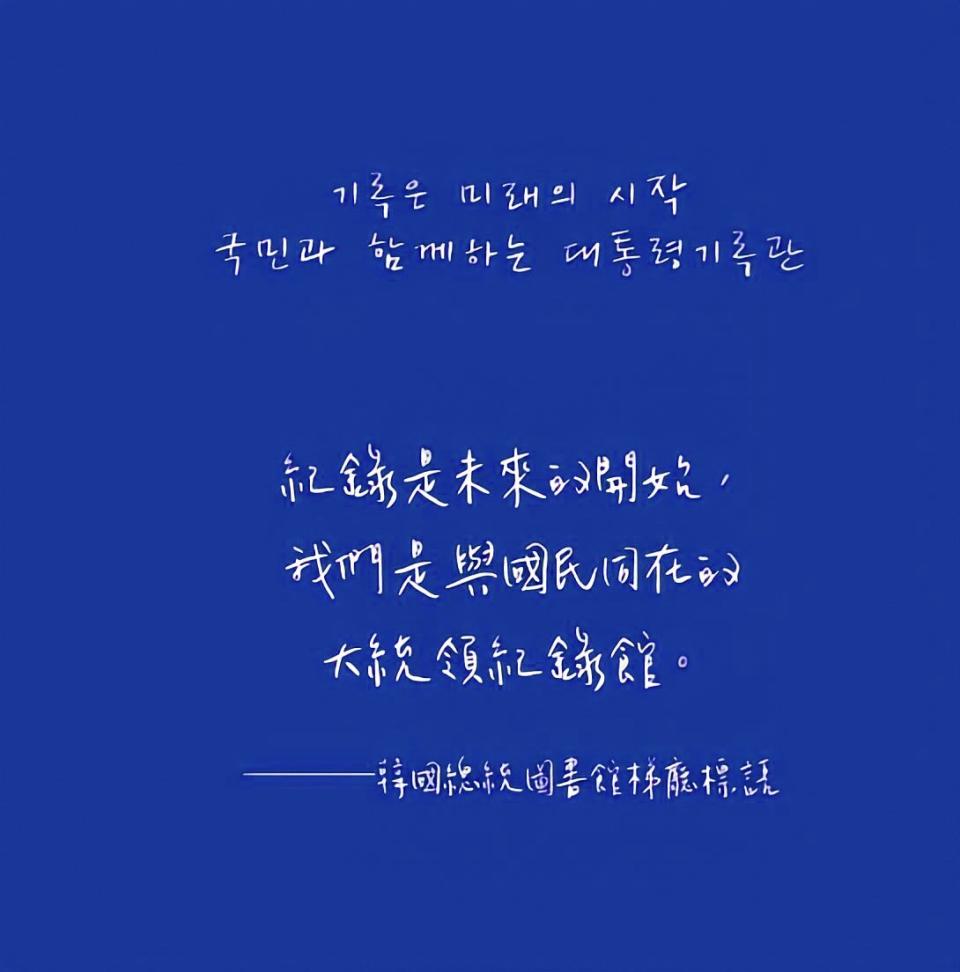 기록은 미래의 시작
국민과 함께하는 대통령기록관
紀錄是未來的開始，
我們是與國民同在的
大統領紀錄館。
——韓國總統圖書館梯廳標語